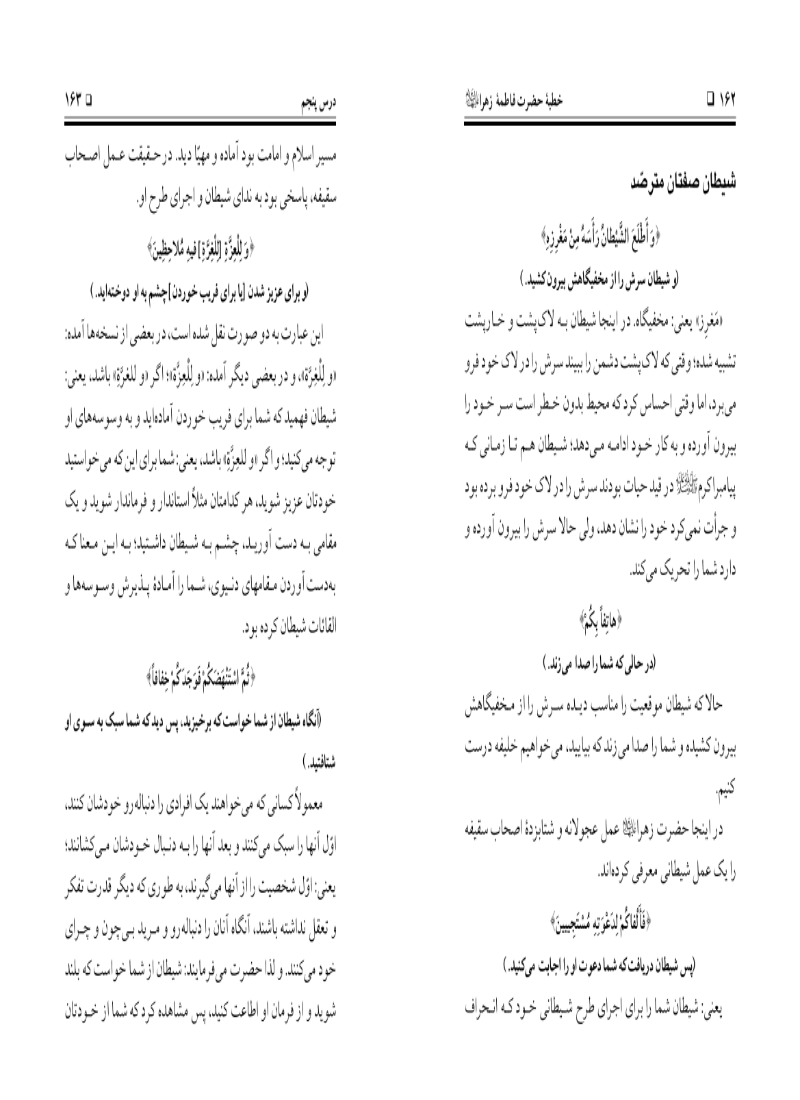 ۱۶۲ ❑ خطبهٔ حضرت فاطمهٔ زهراعلیها‌السلام
شیطان صفتان مترصّد
﴿وَ أَطْلَعَ الشَّیْطانُ رَأسَهُ مِنْ مَغْرِزِهِ﴾
(و شیطان سرش را از مخفیگاهش بیرون کشید.)
«مَغرِز» یعنی: مخفیگاه. در اینجا شیطان به لاک‌پشت و خارپشت
تشبیه شده؛ وقتی که لاک‌پشت دشمن را ببیند سرش را در لاک خود فرو
می‌برد، اما وقتی احساس کرد که محیط بدون خطر است سر خود را
بیرون آورده و به کار خود ادامه می‌دهد؛ شیطان هم تا زمانی که
پیامبراکرمﷺ در قید حیات بودند سرش را در لاک خود فرو برده بود
و جرأت نمی‌کرد خود را نشان دهد، ولی حالا سرش را بیرون آورده و
دارد شما را تحریک می‌کند.
﴿هاتِفاً بِکُمْ﴾
(در حالی که شما را صدا می‌زند.)
حالا که شیطان موقعیت را مناسب دیده سرش را از مخفیگاهش
بیرون کشیده و شما را صدا می‌زند که بیایید، می‌خواهیم خلیفه درست
کنیم.
در اینجا حضرت زهراعلیها‌السلام عمل عجولانه و شتابزدهٔ اصحاب سقیفه
را یک عمل شیطانی معرفی کرده‌اند.
﴿فَأَلْفاکُمْ لِدَعْوَتِهِ مُسْتَجِیبِینَ﴾
(پس شیطان دریافت که شما دعوت او را اجابت می‌کنید.)
یعنی: شیطان شما را برای اجرای طرح شیطانی خود که انحراف
درس پنجم ❑ ۱۶۳
مسیر اسلام و امامت بود آماده و مهیّا دید. در حقیقت عمل اصحاب
سقیفه، پاسخی بود به ندای شیطان و اجرای طرح او.
﴿وَ لِلْعِزَّةِ [لِلْغِرَّةِ] فیهِ مُلاحِظِینَ﴾
(و برای عزیز شدن [یا برای فریب خوردن] چشم به او دوخته‌اید.)
این عبارت به دو صورت نقل شده است، در بعضی از نسخه‌ها آمده:
«و لِلْغِرَّة»، و در بعضی دیگر آمده: «و لِلْعِزَّة»؛ اگر «و للغرَّةِ» باشد، یعنی:
شیطان فهمید که شما برای فریب خوردن آماده‌اید و به وسوسه‌های او
توجه می‌کنید؛ و اگر «و للعزَّةِ» باشد، یعنی: شما برای این که می‌خواستید
خودتان عزیز شوید، هر کدامتان مثلاً استاندار و فرماندار شوید و یک
مقامی به دست آورید، چشم به شیطان داشتید؛ به این معنا که
به‌دست آوردن مقامهای دنیوی، شما را آمادهٔ پذیرش وسوسه‌ها و
القائات شیطان کرده بود.
﴿ثُمَّ اسْتَنْهَضَکُمْ فَوَجَدَکُمْ خِفافاً﴾
(آنگاه شیطان از شما خواست که برخیزید، پس دید که شما سبک به سوی او
شتافتید.)
معمولاً کسانی که می‌خواهند یک افرادی را دنباله‌رو خودشان کنند،
اوّل آنها را سبک می‌کنند و بعد آنها را به دنبال خودشان می‌کشانند؛
یعنی: اوّل شخصیت را از آنها می‌گیرند، به طوری که دیگر قدرت تفکر
و تعقل نداشته باشند، آنگاه آنان را دنباله‌رو و مرید بی‌چون و چرای
خود می‌کنند. و لذا حضرت می‌فرمایند: شیطان از شما خواست که بلند
شوید و از فرمان او اطاعت کنید، پس مشاهده کرد که شما از خودتان